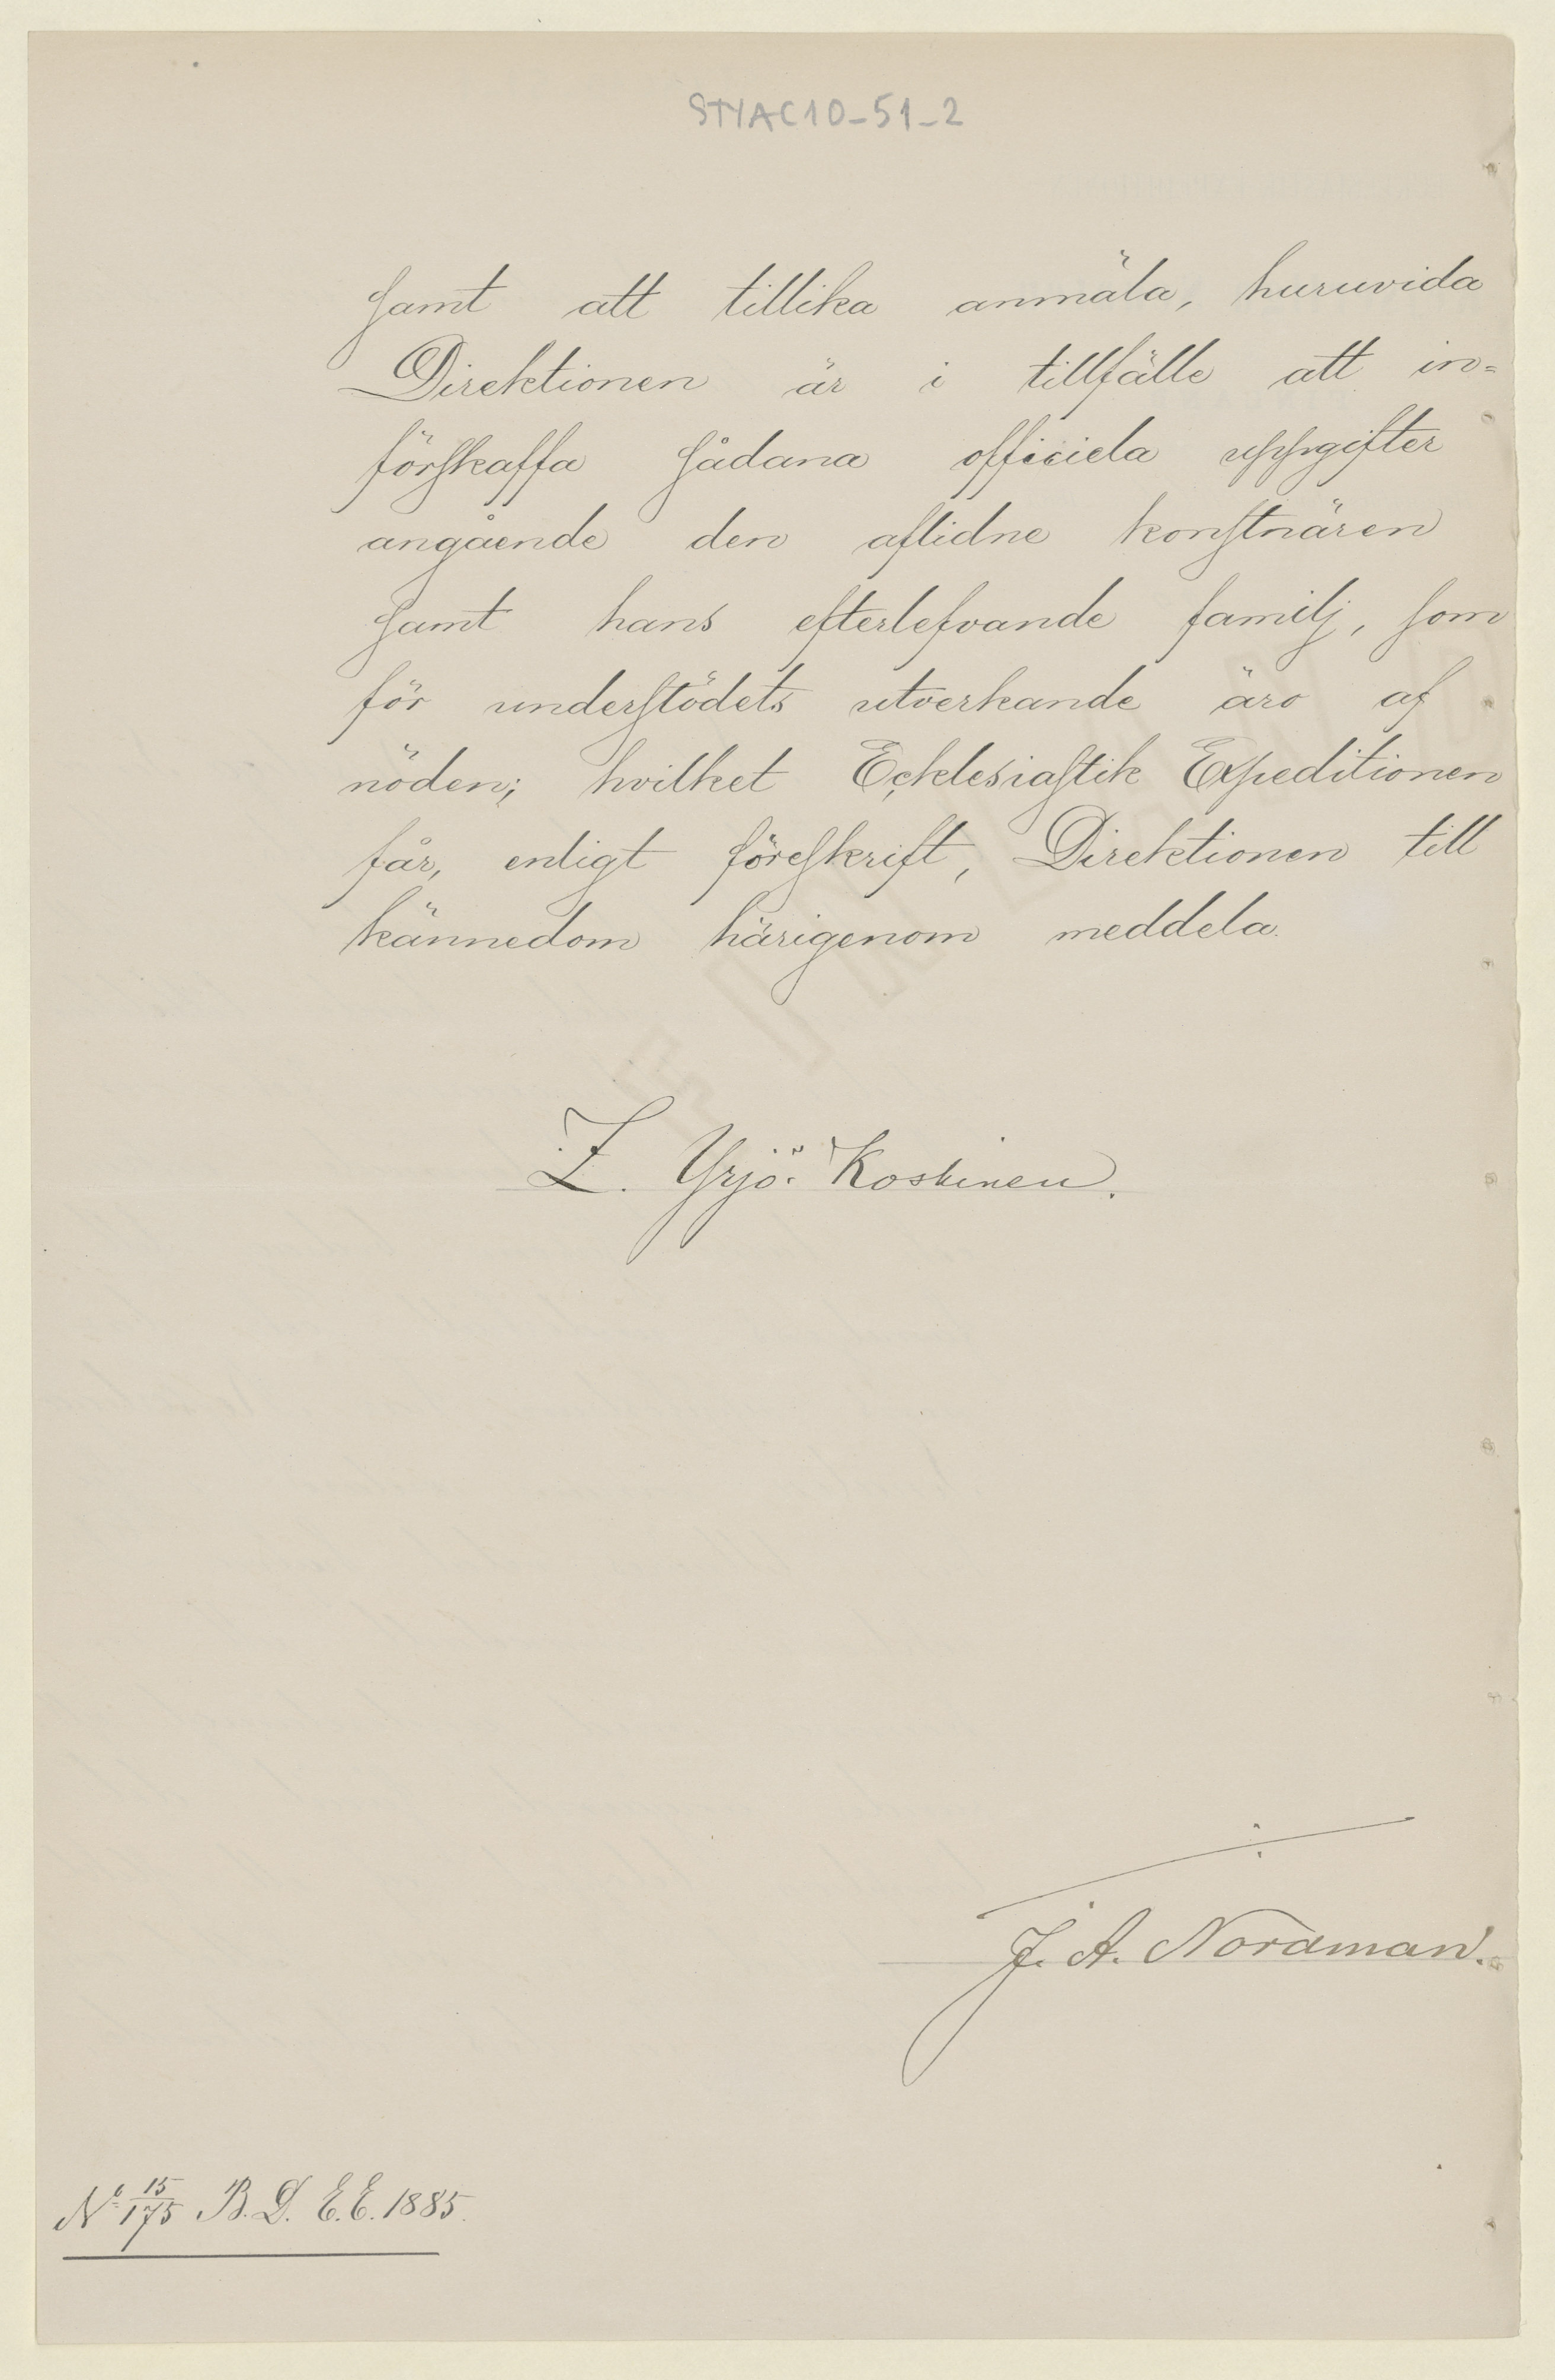 STYAC10-51-2
samt att tillika anmäla, huruvida
Direktionen är i tillfälle att in=
förskaffa sådana officiela uppgifter
angående den aflidne konstnären
samt hans efterlefvande familj, som
för understödets utverkande äro af
nöden; hvilket Ecklesiastik Expeditionen
får, enligt föreskrift, Direktionen till
kännedom härigenom meddela.
Z. Yrjö-Koskinen.
J. A. Nordman.
No 15/175 B.D. E.E. 1885.